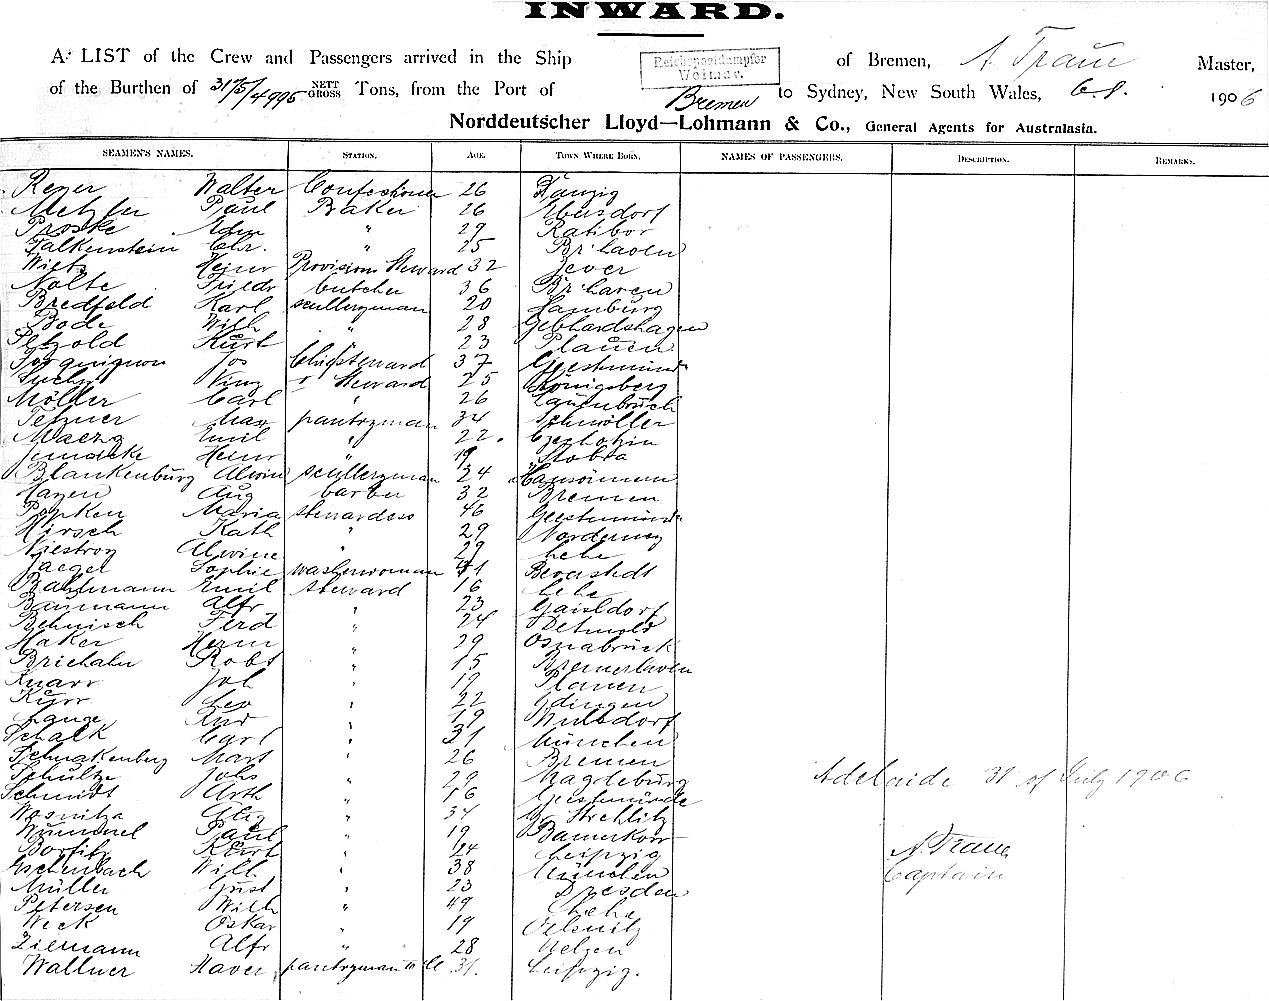 INWARD.
A LIST of the Crew and Passengers arrived in the Ship Reichspostdampfer Weimar. of Bremen, A. Traue Master,
of the Burthen of 3175/4996 NETT GROSS Tons, from the Port of Bremen to Sydney, New South Wales, 1906
Norddeutscher Lloyd—Lohmann & Co., General Agents for Australasia.
SEAMEN'S NAMES. STATION. AGE. TOWN WHERE BORN. NAMES OF PASSENGERS. DESCRIPTION. REMARKS.
Reyer Walter 26 Danzig
Metzler Paul Baker 26 Ebersdorf
Proske " 29 Ratibor
Falkenstein Chr. " 25 Br'haven
Heinr Provision Steward 32 Jever
Nolte Friedr butcher 36 Br'haven
Bredfeld Karl sculleryman 20 Hamburg
Bode Wilh " 28 Gebhardshagen
Petzold Kurt 23 Plauen
Jos Chiefsteward 37 Geestemünde
Steward 25 Königsberg
Möller Carl " 26 Lauenbruch
Tetzner Max pantryman 34 Schmöller
Emil " 22.
Heinr " 19 Stobra
Blankenburg Alwin sculleryman 24
Hayen Aug barber 32 Bremen
Popken Maria stewardess 46 Geestemünde
Hirsch Kath " 29 Norderney
Niestroy Alwine " 29 Lehe
Jaeger Sophie washerwoman 41 Beverstedt
Bahlmann Emil steward 16 Lehe
Baumann Alfr " 23 Gaisldorf
Behnisch Ferd " 24 Detmold
Haker Herm " 29 Osnabrück
Brichahn Robt " 15 Bremerhaven
Knarr Joh " 19 Plauen
Kurr Leo " 22
Lange " 19 Wulsdorf
Schalk Carl " 31 München
Schnakenberg Mart " 26 Bremen
Schultze Johs " 29 Magdeburg Adelaide 31 of July 1906
Schmidt Arth " 16 Geestemünde
Wosnitza " 34 Gr Strehlitz
Wummel Paul " 19
Kurt " 24 Leipzig A. Traue
Eschenbach Wilh " 38 München Captain
Müller Gust " 23 Dresden
Petersen Wilh " 49 Lehe
Weck Oskar " 19 Oelsnitz
Ziemann Alfr " 28 Uelzen
Wallner Xaver pantryman 31. Leipzig.